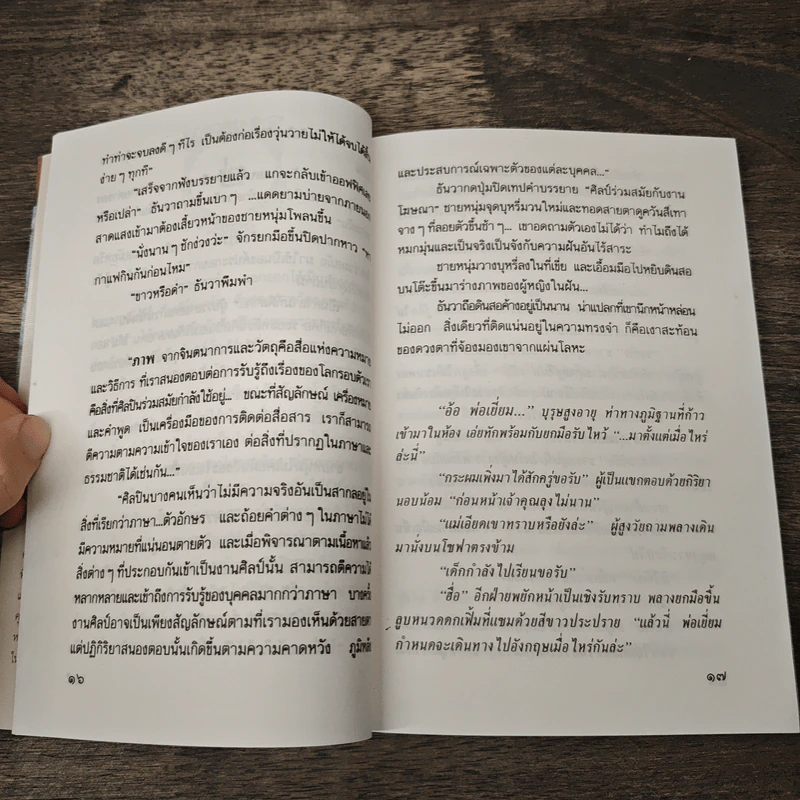 ทำท่าจะจบลงดี ๆ ทีไร เป็นต้องก่อเรื่องวุ่นวายไม่ให้ได้จบได้
ง่าย ๆ ทุกที"
"เสร็จจากฟังบรรยายแล้ว แกจะกลับเข้าออฟฟิศเลย
หรือเปล่า" ธันวาถามขึ้นเบา ๆ ...แดดยามบ่ายจากภายนอก
สาดแสงเข้ามาต้องเสี้ยวหน้าของชายหนุ่มโพลนขึ้น
"นั่งนาน ๆ ชักง่วงว่ะ" จักรยกมือขึ้นปิดปากหาว
กาแฟกินกันก่อนไหม"
"ขาวหรือดำ" ธันวาพึมพำ
"ภาพ จากจินตนาการและวัตถุคือสื่อแห่งความหมาย
และวิธีการ ที่เราสนองตอบต่อการรับรู้ถึงเรื่องของโลกรอบตัวเรา
คือสิ่งที่ศิลปินร่วมสมัยกำลังใช้อยู่... ขณะที่สัญลักษณ์ เครื่องหมาย
และคำพูด เป็นเครื่องมือของการติดต่อสื่อสาร เราก็สามารถ
ตีความตามความเข้าใจของเราเอง ต่อสิ่งที่ปรากฏในภาษาและ
ธรรมชาติได้เช่นกัน..."
"ศิลปินบางคนเห็นว่าไม่มีความจริงอันเป็นสากลอยู่ใน
สิ่งที่เรียกว่าภาษา...ตัวอักษร และถ้อยคำต่าง ๆ ในภาษาไม่ได้
มีความหมายที่แน่นอนตายตัว และเมื่อพิจารณาตามเนื้อหาแล้ว
สิ่งต่าง ๆ ที่ประกอบกันเข้าเป็นงานศิลป์นั้น สามารถตีความได้
หลากหลายและเข้าถึงการรับรู้ของบุคคลมากกว่าภาษา บางครั้ง
งานศิลป์อาจเป็นเพียงสัญลักษณ์ตามที่เรามองเห็นด้วยสายตา
แต่ปฏิกิริยาสนองตอบนั้นเกิดขึ้นตามความคาดหวัง ภูมิหลัง
๑๖
และประสบการณ์เฉพาะตัวของแต่ละบุคคล..."
ธันวากดปุ่มปิดเทปคำบรรยาย "ศิลป์ร่วมสมัยกับงาน
โฆษณา" ชายหนุ่มจุดบุหรี่มวนใหม่และทอดสายตาดูควันสีเทา
จาง ๆ ที่ลอยตัวขึ้นช้า ๆ... เขาอดถามตัวเองไม่ได้ว่า ทำไมถึงได้
หมกมุ่นและเป็นจริงเป็นจังกับความฝันอันไร้สาระ
ชายหนุ่มวางบุหรี่ลงในที่เขี่ย และเอื้อมมือไปหยิบดินสอ
บนโต๊ะขึ้นมาร่างภาพของผู้หญิงในฝัน...
ธันวาถือดินสอค้างอยู่เป็นนาน น่าแปลกที่เขานึกหน้าหล่อน
ไม่ออก สิ่งเดียวที่ติดแน่นอยู่ในความทรงจำ ก็คือเงาสะท้อน
ของดวงตาที่จ้องมองเขาจากแผ่นโลหะ
"อ้อ พ่อเยี่ยม..." บุรุษสูงอายุ ท่าทางภูมิฐานที่ก้าว
เข้ามาในห้อง เอ่ยทักพร้อมกับยกมือรับไหว้ "...มาตั้งแต่เมื่อไหร่
ล่ะนี่"
"กระผมเพิ่งมาได้สักครู่ขอรับ" ผู้เป็นแขกตอบด้วยกิริยา
นอบน้อม "ก่อนหน้าเจ้าคุณลุงไม่นาน"
"แม่เอียดเขาทราบหรือยังล่ะ" ผู้สูงวัยถามพลางเดิน
มานั่งบนโซฟาตรงข้าม
"เด็กกำลังไปเรียนขอรับ"
"ฮื่อ" อีกฝ่ายพยักหน้าเป็นเชิงรับทราบ พลางยกมือขึ้น
ลูบหนวดดกเฟิ้มที่แซมด้วยสีขาวประปราย "แล้วนี่ พ่อเยี่ยม
กำหนดจะเดินทางไปอังกฤษเมื่อไหร่กันล่ะ"
๑๗